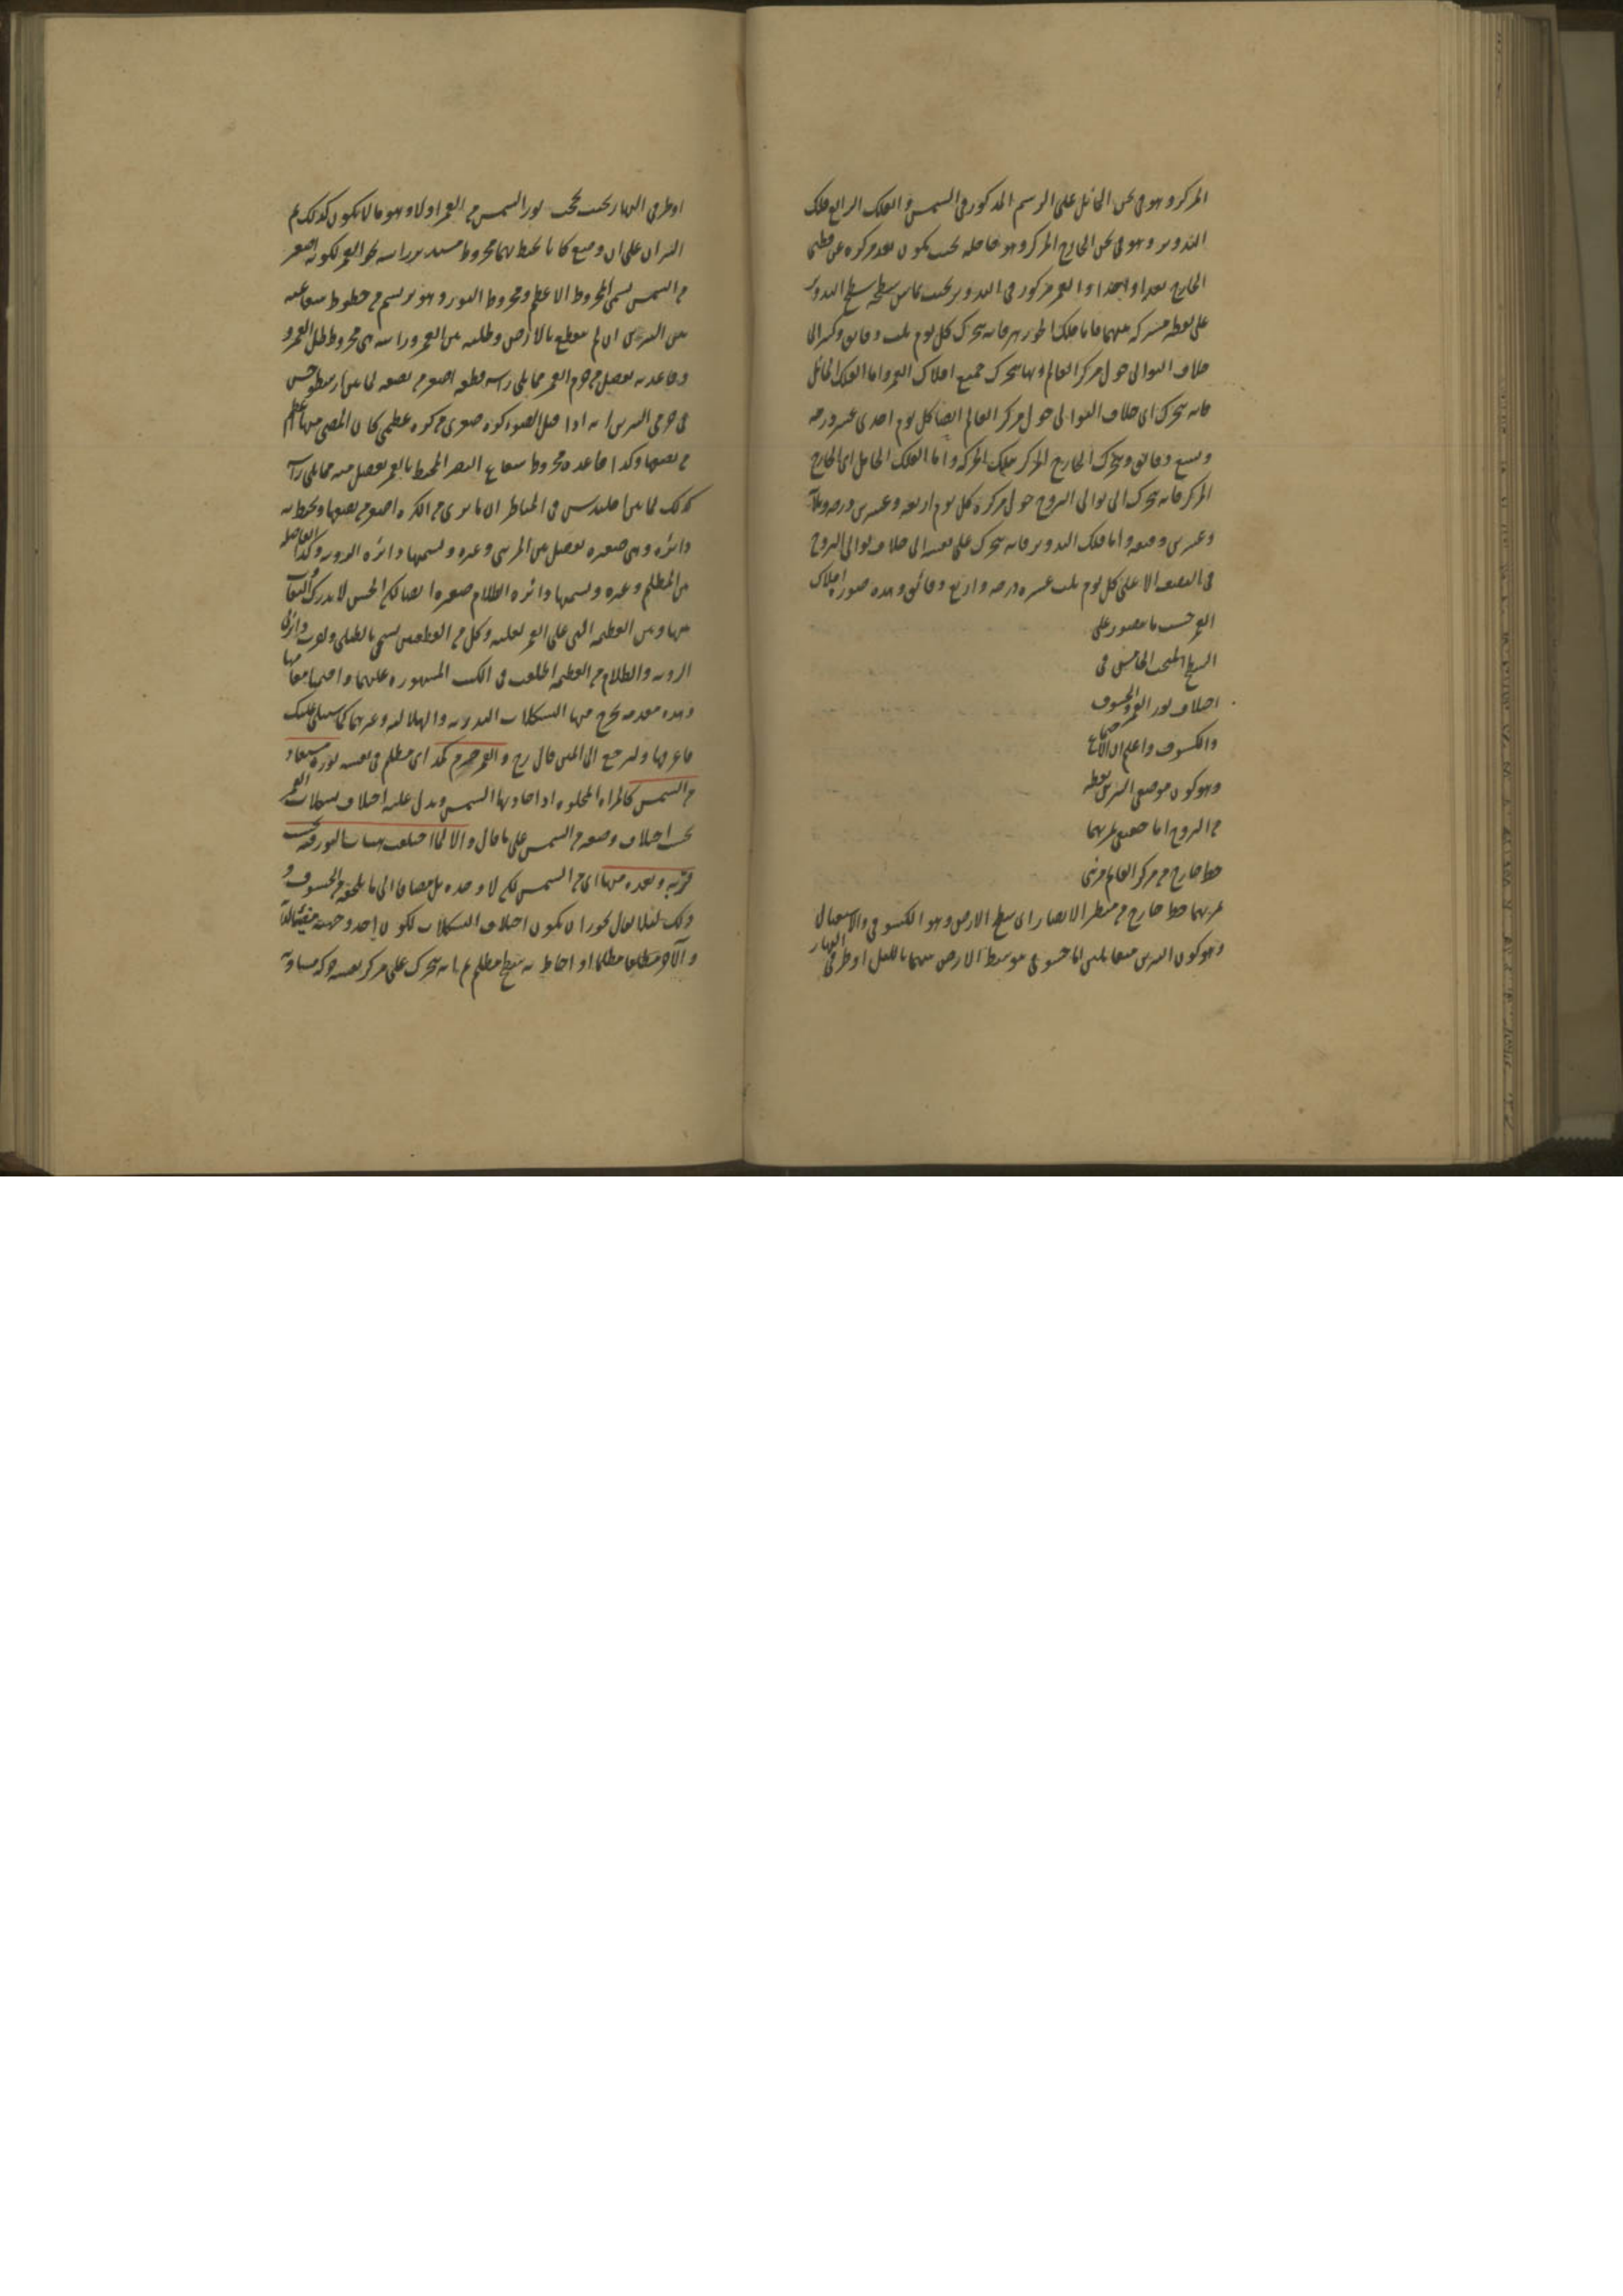 المركز وهو في ثخن المائل على الرسم المذكور في الشمس و الفلك الرابع فلك
التدوير وهو في ثخن الخارج المركز وهو حامله بحيث يكون بعد مركزه عن قطبي
الخارج بعدا واحدا و القمر مركوز في التدوير بحيث يماس سطحه سطح التدوير
على نقطة مشتركة بينهما فاما فلك الجوزهر فانه يتحرك كل يوم ثلث دقائق وكسر الى
خلاف التوالى حول مركز العالم وبها يتحرك جميع افلاك القمر واما الفلك المائل
فانه يتحرك الى خلاف التوالى حول مركز العالم ايضا كل يوم احدى عشر درجه
وتسع دقائق ويتحرك الخارج المركز بتلك الحركه واما الفلك الحامل اى الخارج
المركز فانه يتحرك الى توالى البروج حول مركزه كل يوم اربعه وعشرين درجه وثلاثا
وعشرين دقيقه واما فلك التدوير فانه يتحرك على نفسه الى خلاف توالى البروج
في النصف الاعلى كل يوم ثلث عشره درجه واربع دقائق وهذه صوره افلاك
القمر حسب ما يتصور على
السطح المبحث الخامس في
اختلاف نور القمر والخسوف
والكسوف واعلم ان الاجتماع
وهو كون موضعى النيرين نقطه
من البروج اما حقيقى يمر بهما
خط خارج من مركز العالم مرئى
يمر بهما خط خارج من منظر الابصار اى سطح الارض وهو الكسوفى والاستقبال
وهو كون النيرين متقابلين اما خسوفى بتوسط الارض بينهما بالليل او طرفى النهار
او طرفى النهار بحيث يحجب نور الشمس من القمر اولا وهو ما لا يكون كذلك ثم
النيران على اى وضع كانا يحيط بهما مخروط مستدير راسه نحو القمر لكونه اصغر
من الشمس يسمى المخروط الاعظم ومخروط النور وهو يرتسم من خطوط شعاعيه
بين النيرين ان لم ينقطع بالارض وظلمه بين القمر وراسه هى مخروط ظل القمر و
وقاعدته تفصل من جرم القمر مما يلى راسه قطعه اصغر من نصفه لما بين ارسطوخس
في جرمى النيرين انه اذا قبل الضوء كره صغرى من كره عظمى كان المضى منها اعظم
من نصفها وكذا قاعده مخروط شعاع البصر المحيط بالقمر تفصل منه مما يلى راسه
كذلك لما بين اقليدس في المناظر ان ما يرى من الكره اصغر من نصفها ويحيط به
دائره وهى صغيره تفصل بين المرئى وغيره وتسميها دائره الرويه وكذا الفاصله
بين المظلم وغيره وتسميها دائره الظلام صغيره ايضا لكن الحس لا يدرك التفاوت
بينها وبين العظيمه التى على القمر لقلته وكل من القطعتين
الرويه والظلام من العظيمه اطلقت في الكتب المشهوره عليهما واقيما مقامها
وهذه مقدمه يخرج منها التشكلات البدريه والهلاليه وغيرهما كما سيتلى عليك
فاعرفها ولنرجع الى المتن قال رح والقمر جرم كمد اى مظلم في نفسه نوره مستفاد
من الشمس كالمراه المجلوه اذا حاذيها الشمس ويدل عليه اختلاف تشكلات القمر
بحسب اختلاف وضعه من الشمس على ما قال والا لما اختلفت هيئات النور فيه بحسب
قربه وبعده منها اى من الشمس لكن لا وحده بل مضافا الى ما يلحقه من الخسوف و
ذلك لئلا يقال يجوز ان يكون اختلاف التشكلات لكون احد وجهيه مضيئا لذاته
والآخر مظلما او احاط به سطح مظلم ثم انه يتحرك على مركز نفسه حركه مساويه